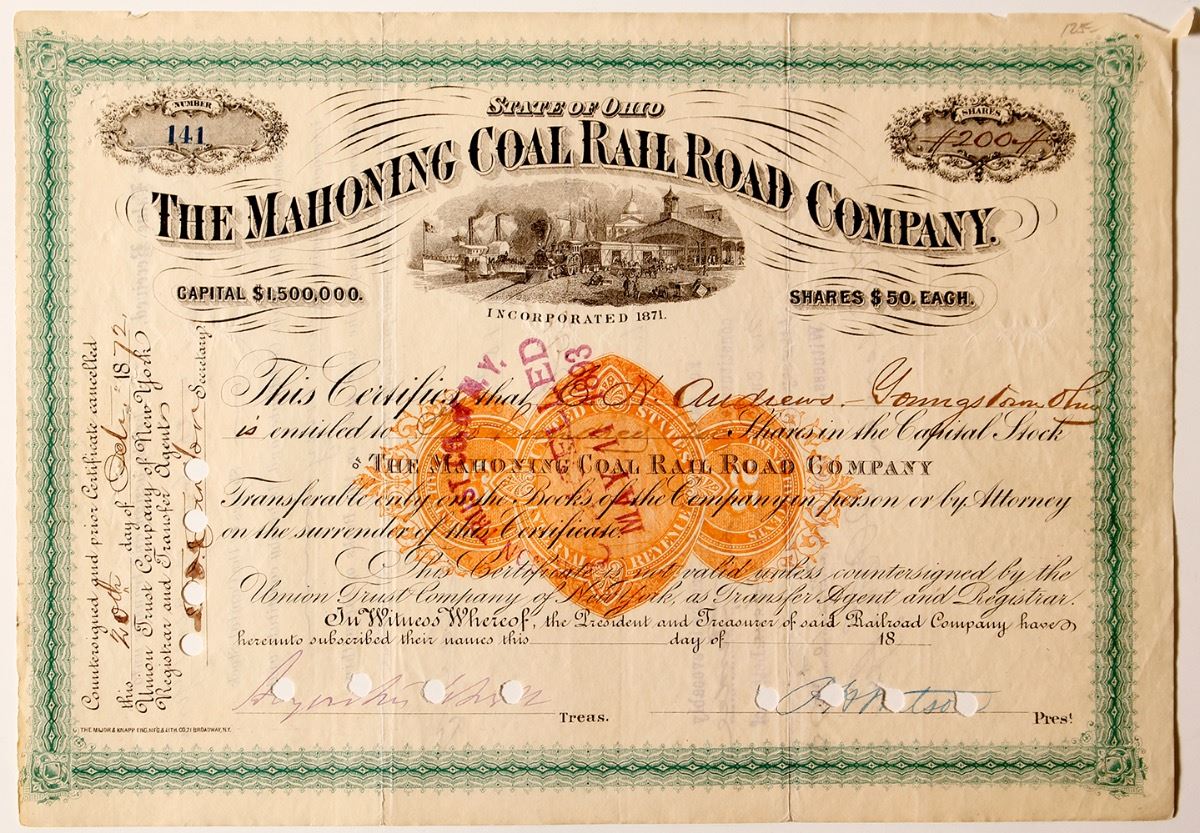 125-
NUMBER
141
STATE OF OHIO
SHARES
200
THE MAHONING COAL RAIL ROAD COMPANY.
CAPITAL $1,500,000.
SHARES $50. EACH.
INCORPORATED 1871.
This Certifies that E. N. Andrews - Youngstown Ohio
is entitled to Shares in the Capital Stock
of THE MAHONING COAL RAIL ROAD COMPANY
Transferable only on the Books of the Company in person or by Attorney
on the surrender of this Certificate.
This Certificate is not valid unless countersigned by the
Union Trust Company of New York, as Transfer Agent and Registrar.
In Witness Whereof, the President and Treasurer of said Railroad Company have
hereunto subscribed their names this day of 18
Treas.
Prest
Countersigned and prior Certificate cancelled
this 20th day of Dec 1872,
Union Trust Company of New York
Registrar and Transfer Agents
Secretary
TRUST CO. N.Y.
MAY
UNITED STATES
INTERNAL REVENUE
THE MAJOR & KNAPP ENG. MFG & LITH. CO. 71 BROADWAY, N.Y.